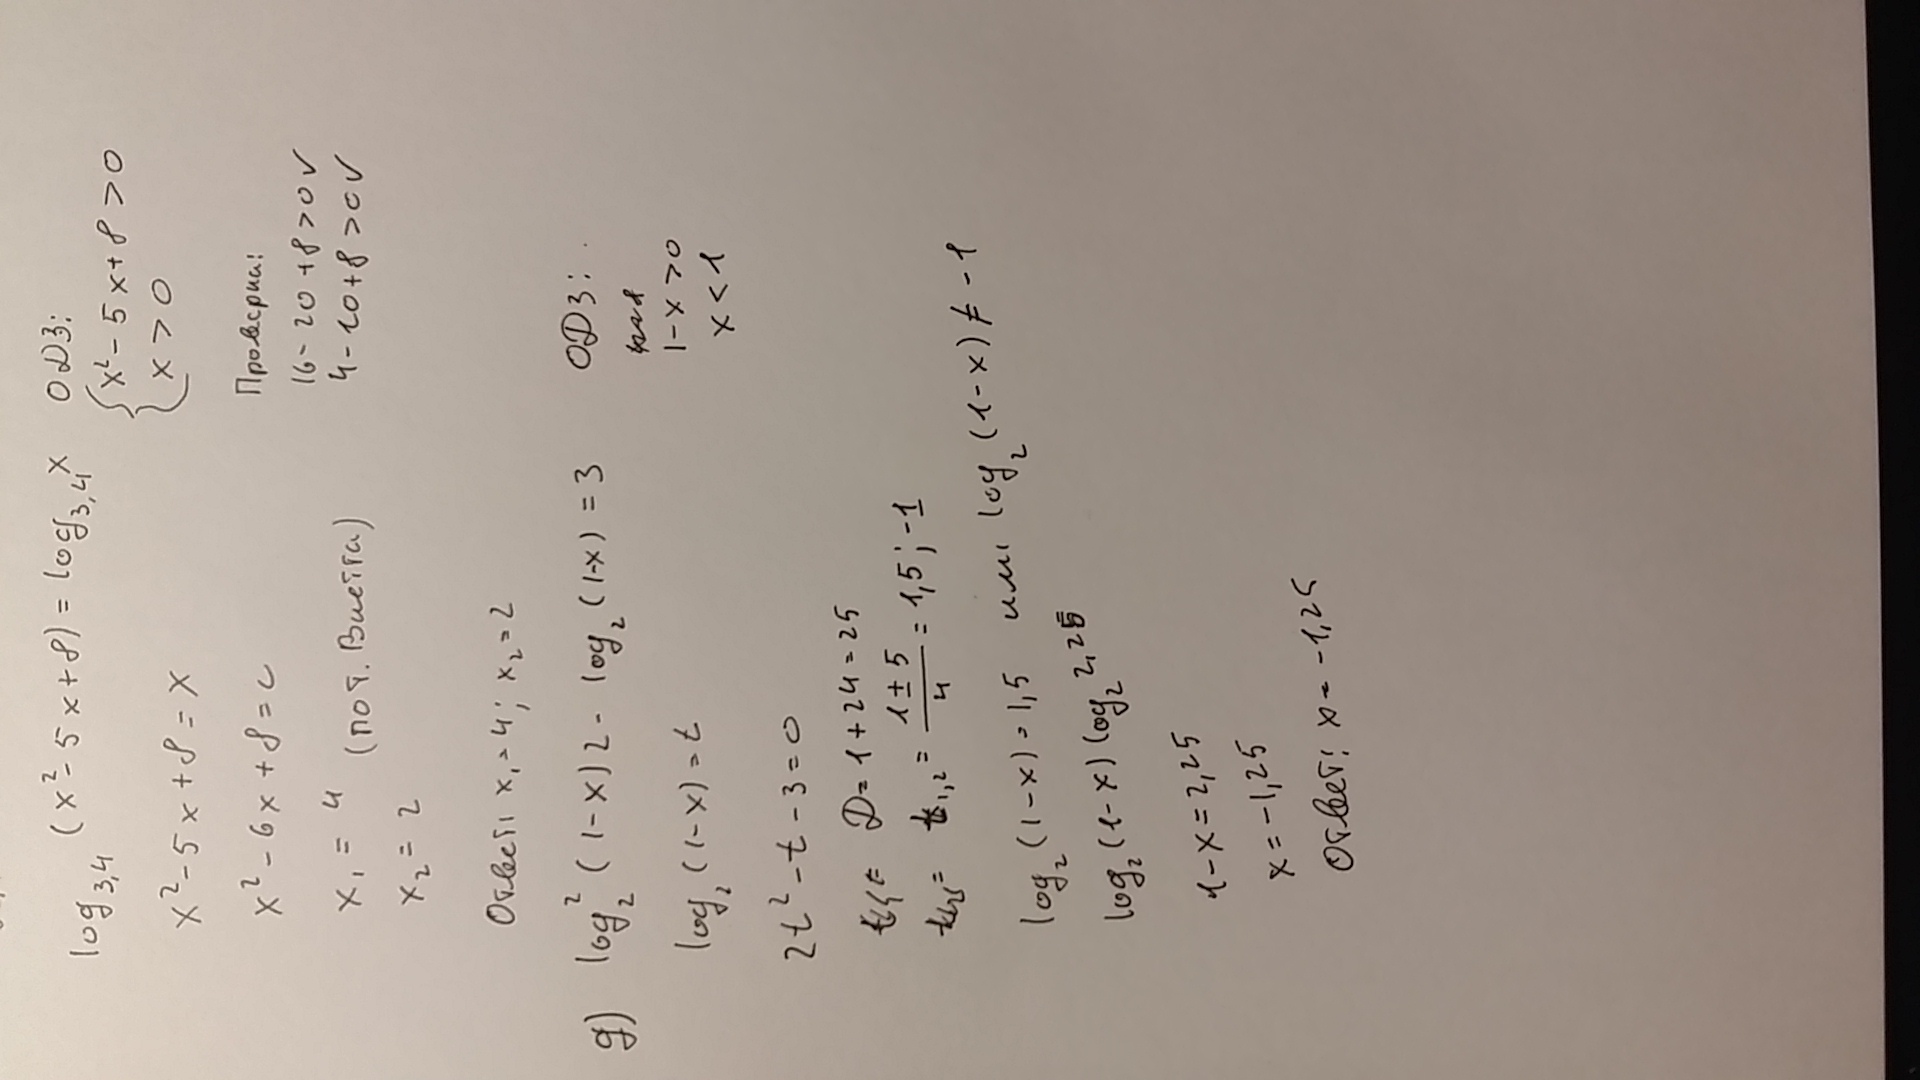 log₃,₄ (x² - 5x + 8) = log₃,₄ x ОДЗ:
{ x² - 5x + 8 > 0
x > 0
x² - 5x + 8 = x
x² - 6x + 8 = 0
Проверим:
x₁ = 4 (по т. Виетта)
16 - 20 + 8 > 0 ✓
x₂ = 2
4 - 10 + 8 > 0 ✓
Ответ: x₁ = 4; x₂ = 2
д) log₂² (1-x) 2 - log₂ (1-x) = 3 ОДЗ:
log₂ (1-x) = t
1 - x > 0
x < 1
2t² - t - 3 = 0
D = 1 + 24 = 25
t₁,₂ = (1 ± 5)/4 = 1,5; -1
log₂ (1-x) = 1,5 или log₂ (1-x) ≠ -1
log₂ (1-x) log₂ 2,25
1 - x = 2,25
x = -1,25
Ответ: x = -1,25